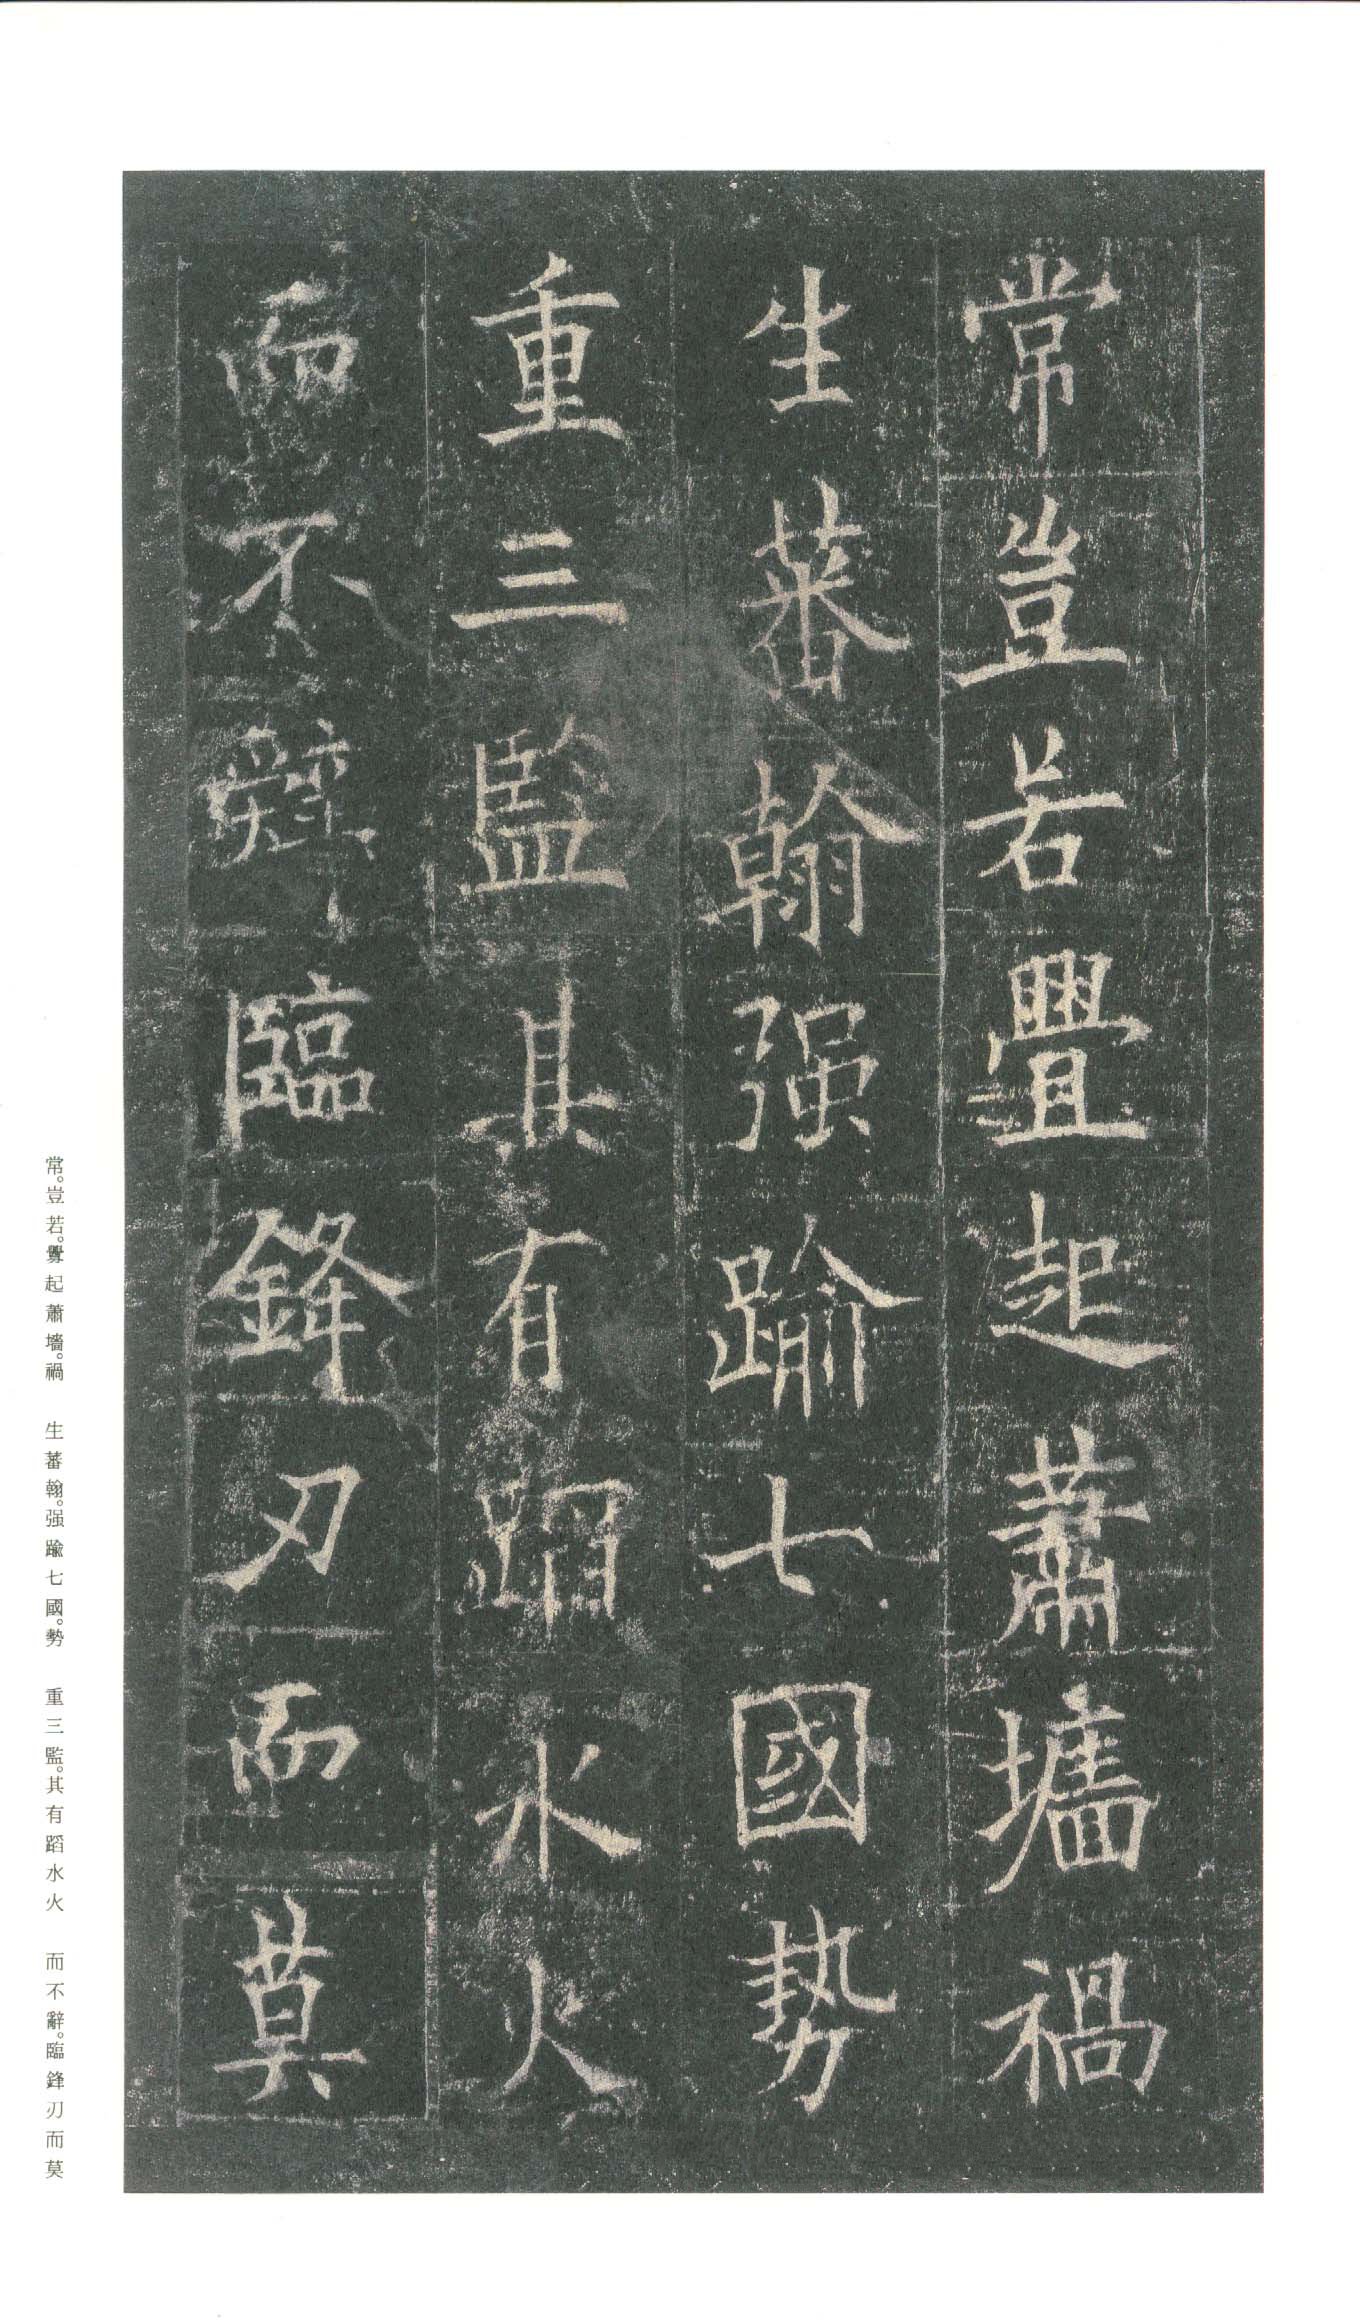 常豈若亹起蕭墻禍
生蕃翰强踰七國勢
重三監其有蹈水火
而不辭臨鋒刃而莫
常。豈若。舋起蕭墻。禍　生蕃翰。强踰七國。勢　重三監。其有蹈水火　而不辭。臨鋒刃而莫